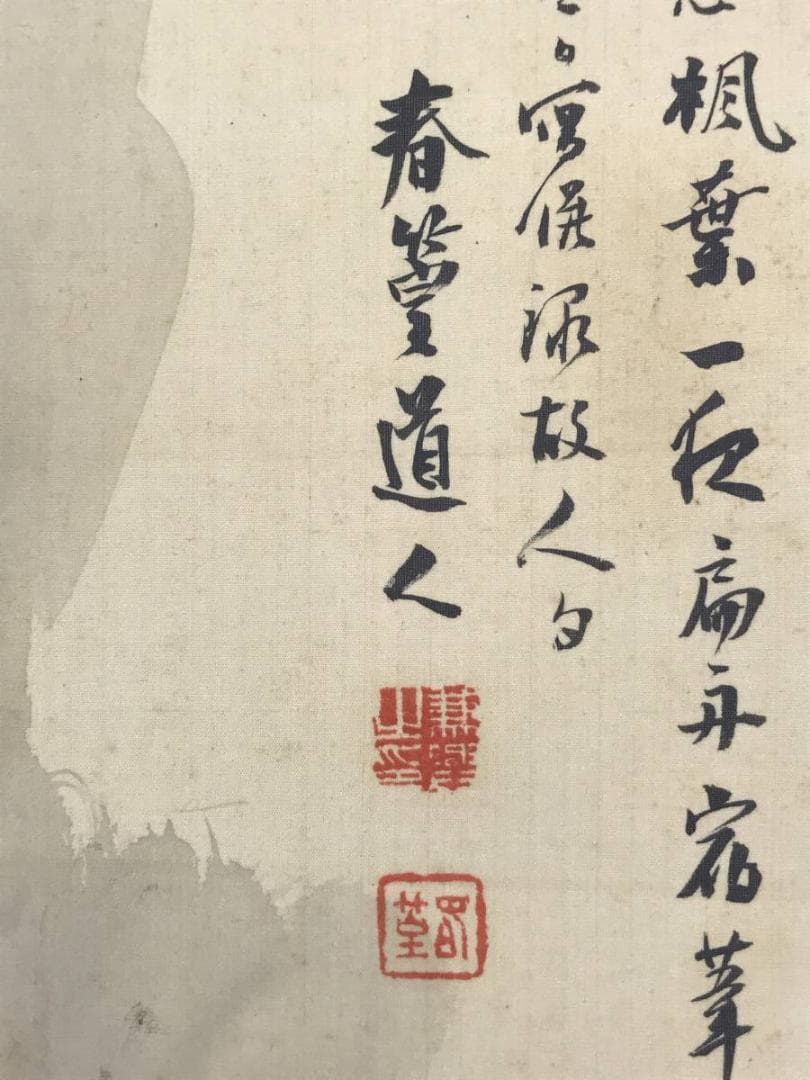 楓葉一夜扁舟宿葦
寫併録故人句
春篁道人